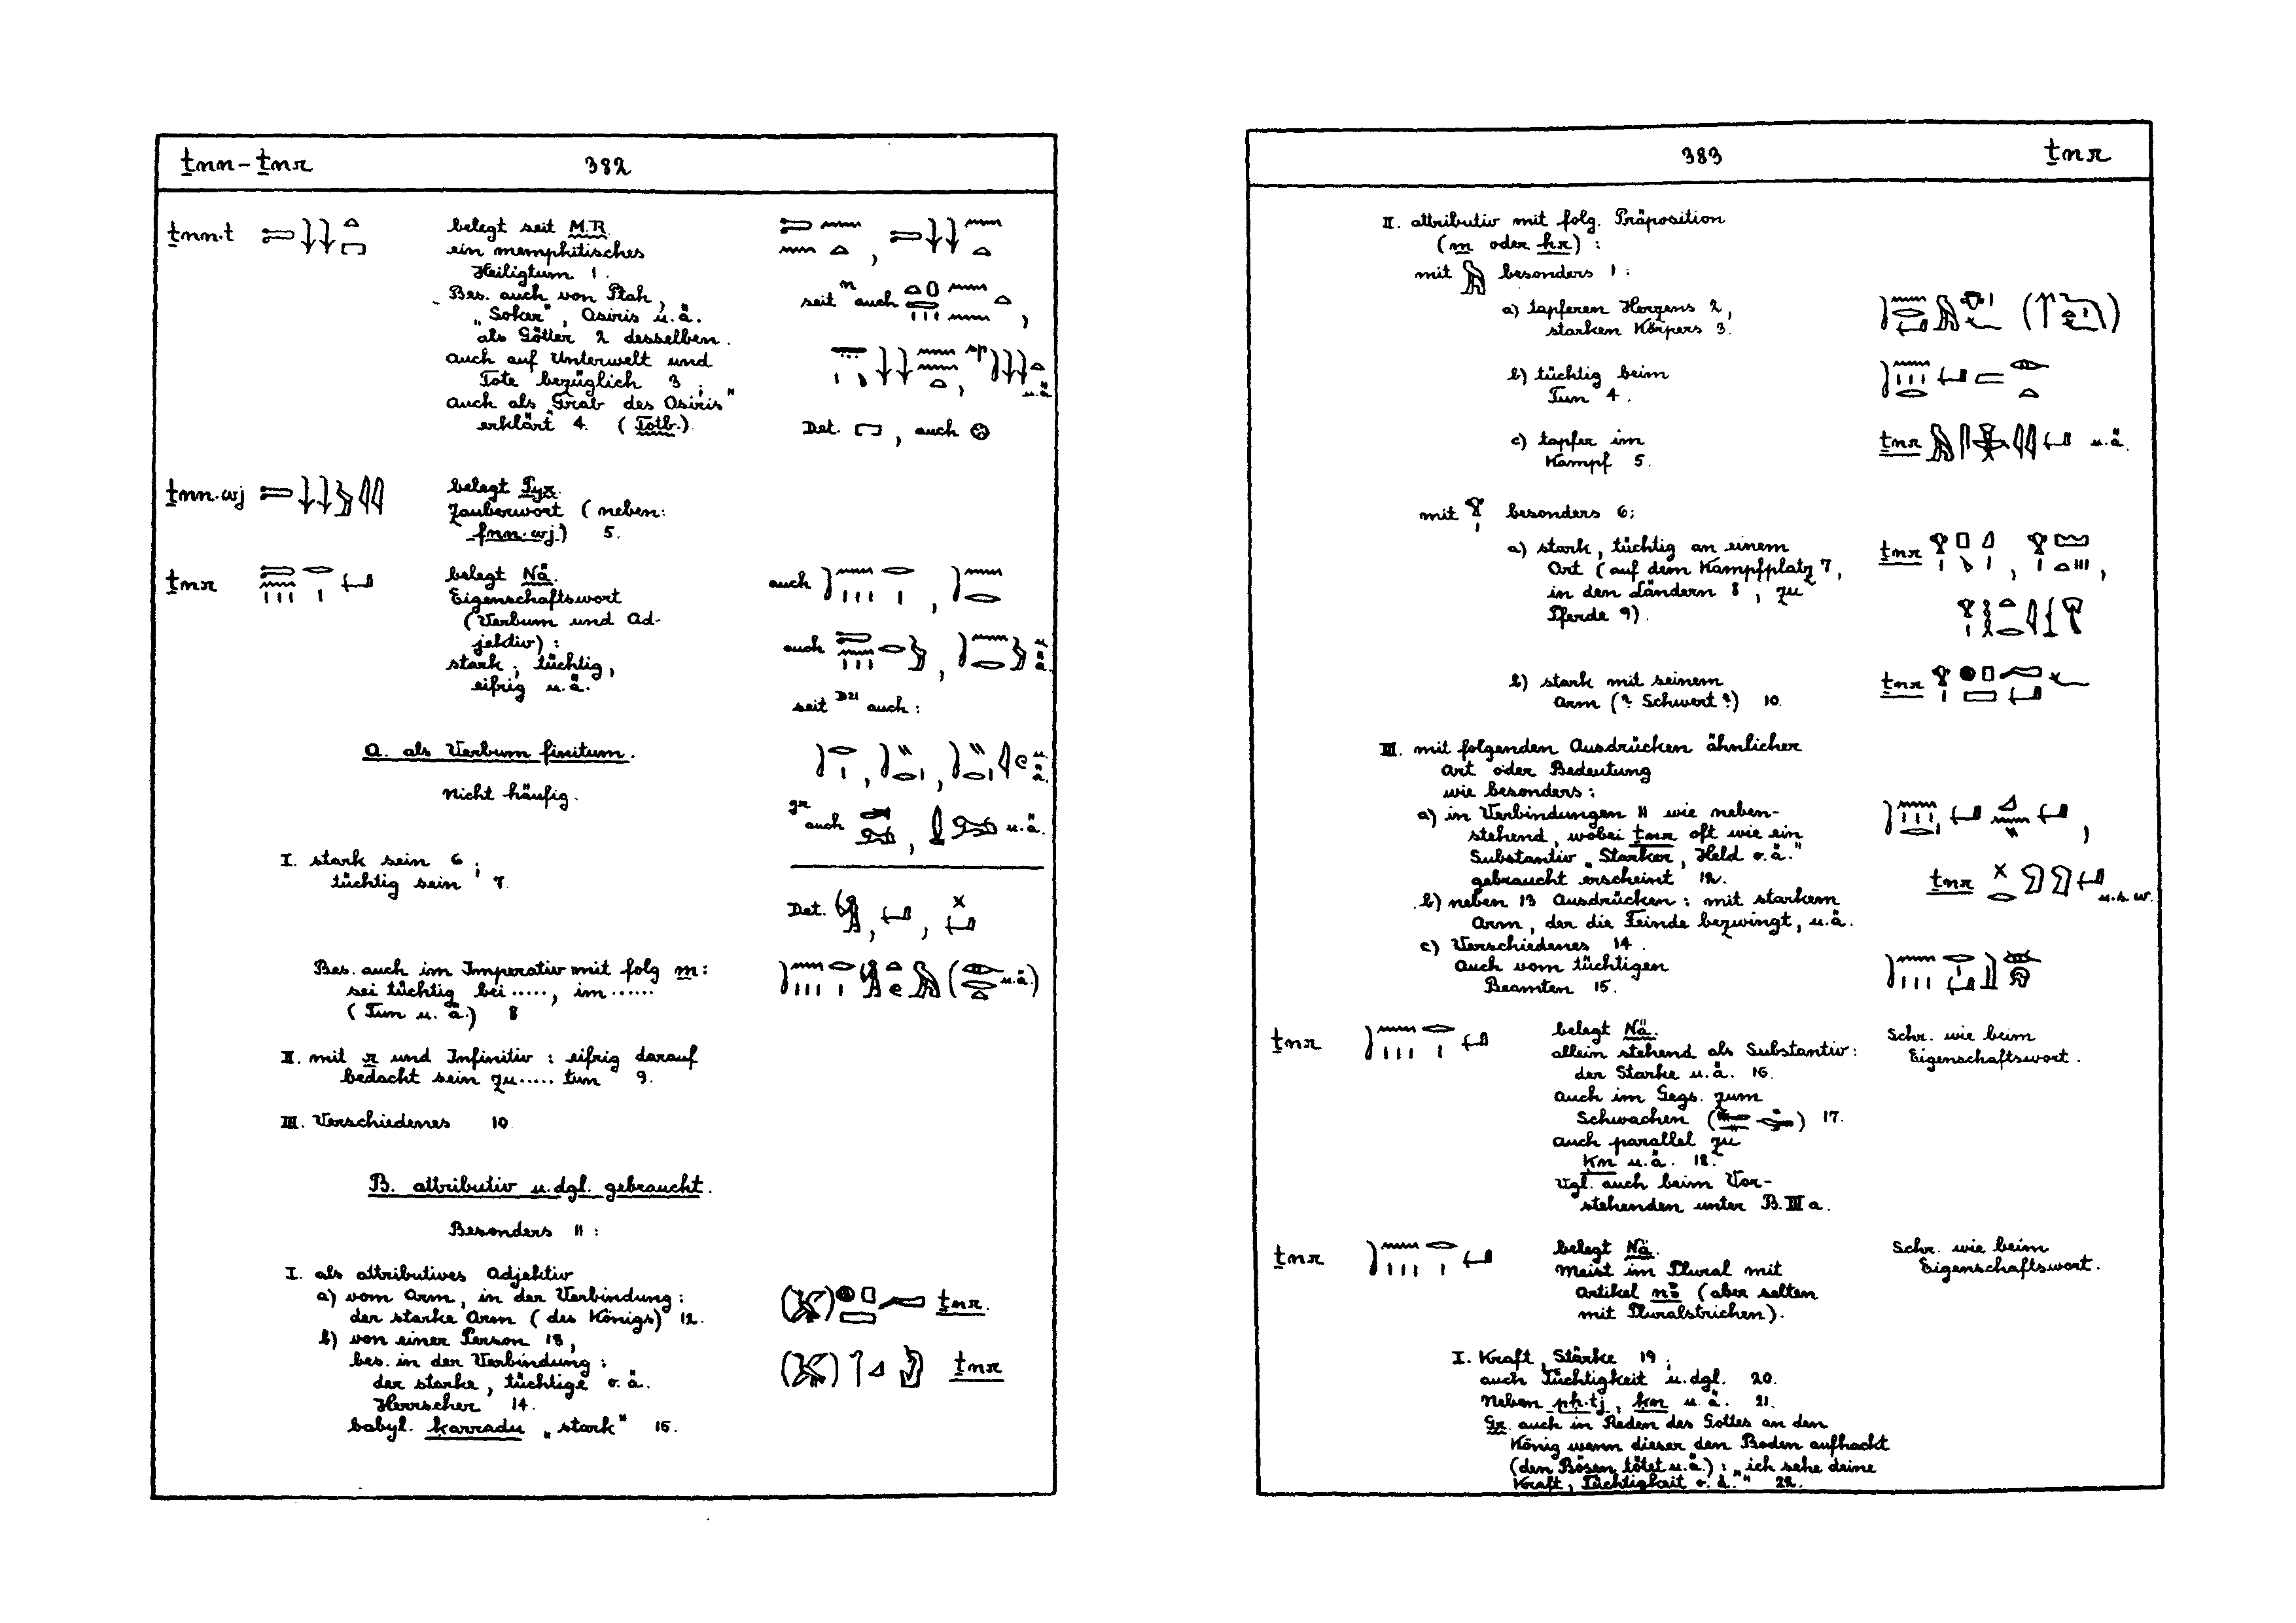 ṯnn – ṯnr 382
ṯnn.t
belegt seit M.R.
ein memphitisches
Heiligtum 1.
Bes. auch von Ptah,
„Soker", Osiris u.ä.
als Götter 2 desselben.
auch auf Unterwelt und
Tote bezüglich 3;
auch als „Grab des Osiris"
erklärt 4. (Totb.)
seit n auch
sp
u.ä
Det. , auch
ṯnn.wj
belegt Pyr.
Zauberwort (neben:
fnn.wj) 5.
ṯnr
belegt Nä.
Eigenschaftswort
(Verbum und Ad-
jektiv):
stark; tüchtig,
eifrig u.ä.
auch
auch u.ä.
seit D21 auch:
u.ä.
gr auch , u.ä.
Det.
A. als Verbum finitum.
Nicht häufig.
I. stark sein 6;
tüchtig sein 7.
Bes. auch im Imperativ mit folg m:
sei tüchtig bei ....., im ......
(Tun u. ä.) 8
( u.ä.)
II. mit r und Infinitiv: eifrig darauf
bedacht sein zu ..... tun 9.
III. Verschiedenes 10.
B. attributiv u.dgl. gebraucht.
Besonders 11:
I. als attributives Adjektiv
a) vom Arm, in der Verbindung:
der starke Arm (des Königs) 12.
ṯnr.
b) von einer Person 13,
bes. in der Verbindung:
der starke, tüchtige o.ä.
Herrscher 14.
ṯnr
babyl. karradu „stark" 15.
383 ṯnr
II. attributiv mit folg. Präposition
(m oder ḥr):
mit besonders 1:
a) tapferen Herzens 2,
starken Körpers 3.
b) tüchtig beim
Tun 4.
c) tapfer im
Kampf 5.
ṯnr u.ä.
mit besonders 6:
a) stark, tüchtig an einem
Ort (auf dem Kampfplatz 7,
in den Ländern 8, zu
Pferde 9).
ṯnr
b) stark mit seinem
Arm (? Schwert?) 10.
ṯnr
III. mit folgenden Ausdrücken ähnlicher
Art oder Bedeutung
wie besonders:
a) in Verbindungen 11 wie neben-
stehend, wobei ṯnr oft wie ein
Substantiv „Starker, Held o.ä."
gebraucht erscheint 12.
ṯnr u.s.w.
b) neben 13 Ausdrücken: mit starkem
Arm, der die Feinde bezwingt, u.ä.
c) Verschiedenes 14.
Auch vom tüchtigen
Beamten 15.
ṯnr
belegt Nä.
allein stehend als Substantiv:
der Starke u.ä. 16.
auch im Gegs. zum
Schwachen ( ) 17.
auch parallel zu
ḳn u.ä. 18.
Vgl. auch beim Vor-
stehenden unter B.III a.
Schr. wie beim
Eigenschaftswort.
ṯnr
belegt Nä.
Meist im Plural mit
Artikel (aber selten
mit Pluralstrichen).
Schr. wie beim
Eigenschaftswort.
I. Kraft, Stärke 19;
auch Tüchtigkeit u.dgl. 20.
Neben pḥ.tj, ḳn u.ä. 21.
Gr. auch in Reden des Gottes an den
König wenn dieser den Boden aufhackt
(den Bösen tötet u.ä.): „ich sehe deine
Kraft, Tüchtigkeit o.ä." 22.